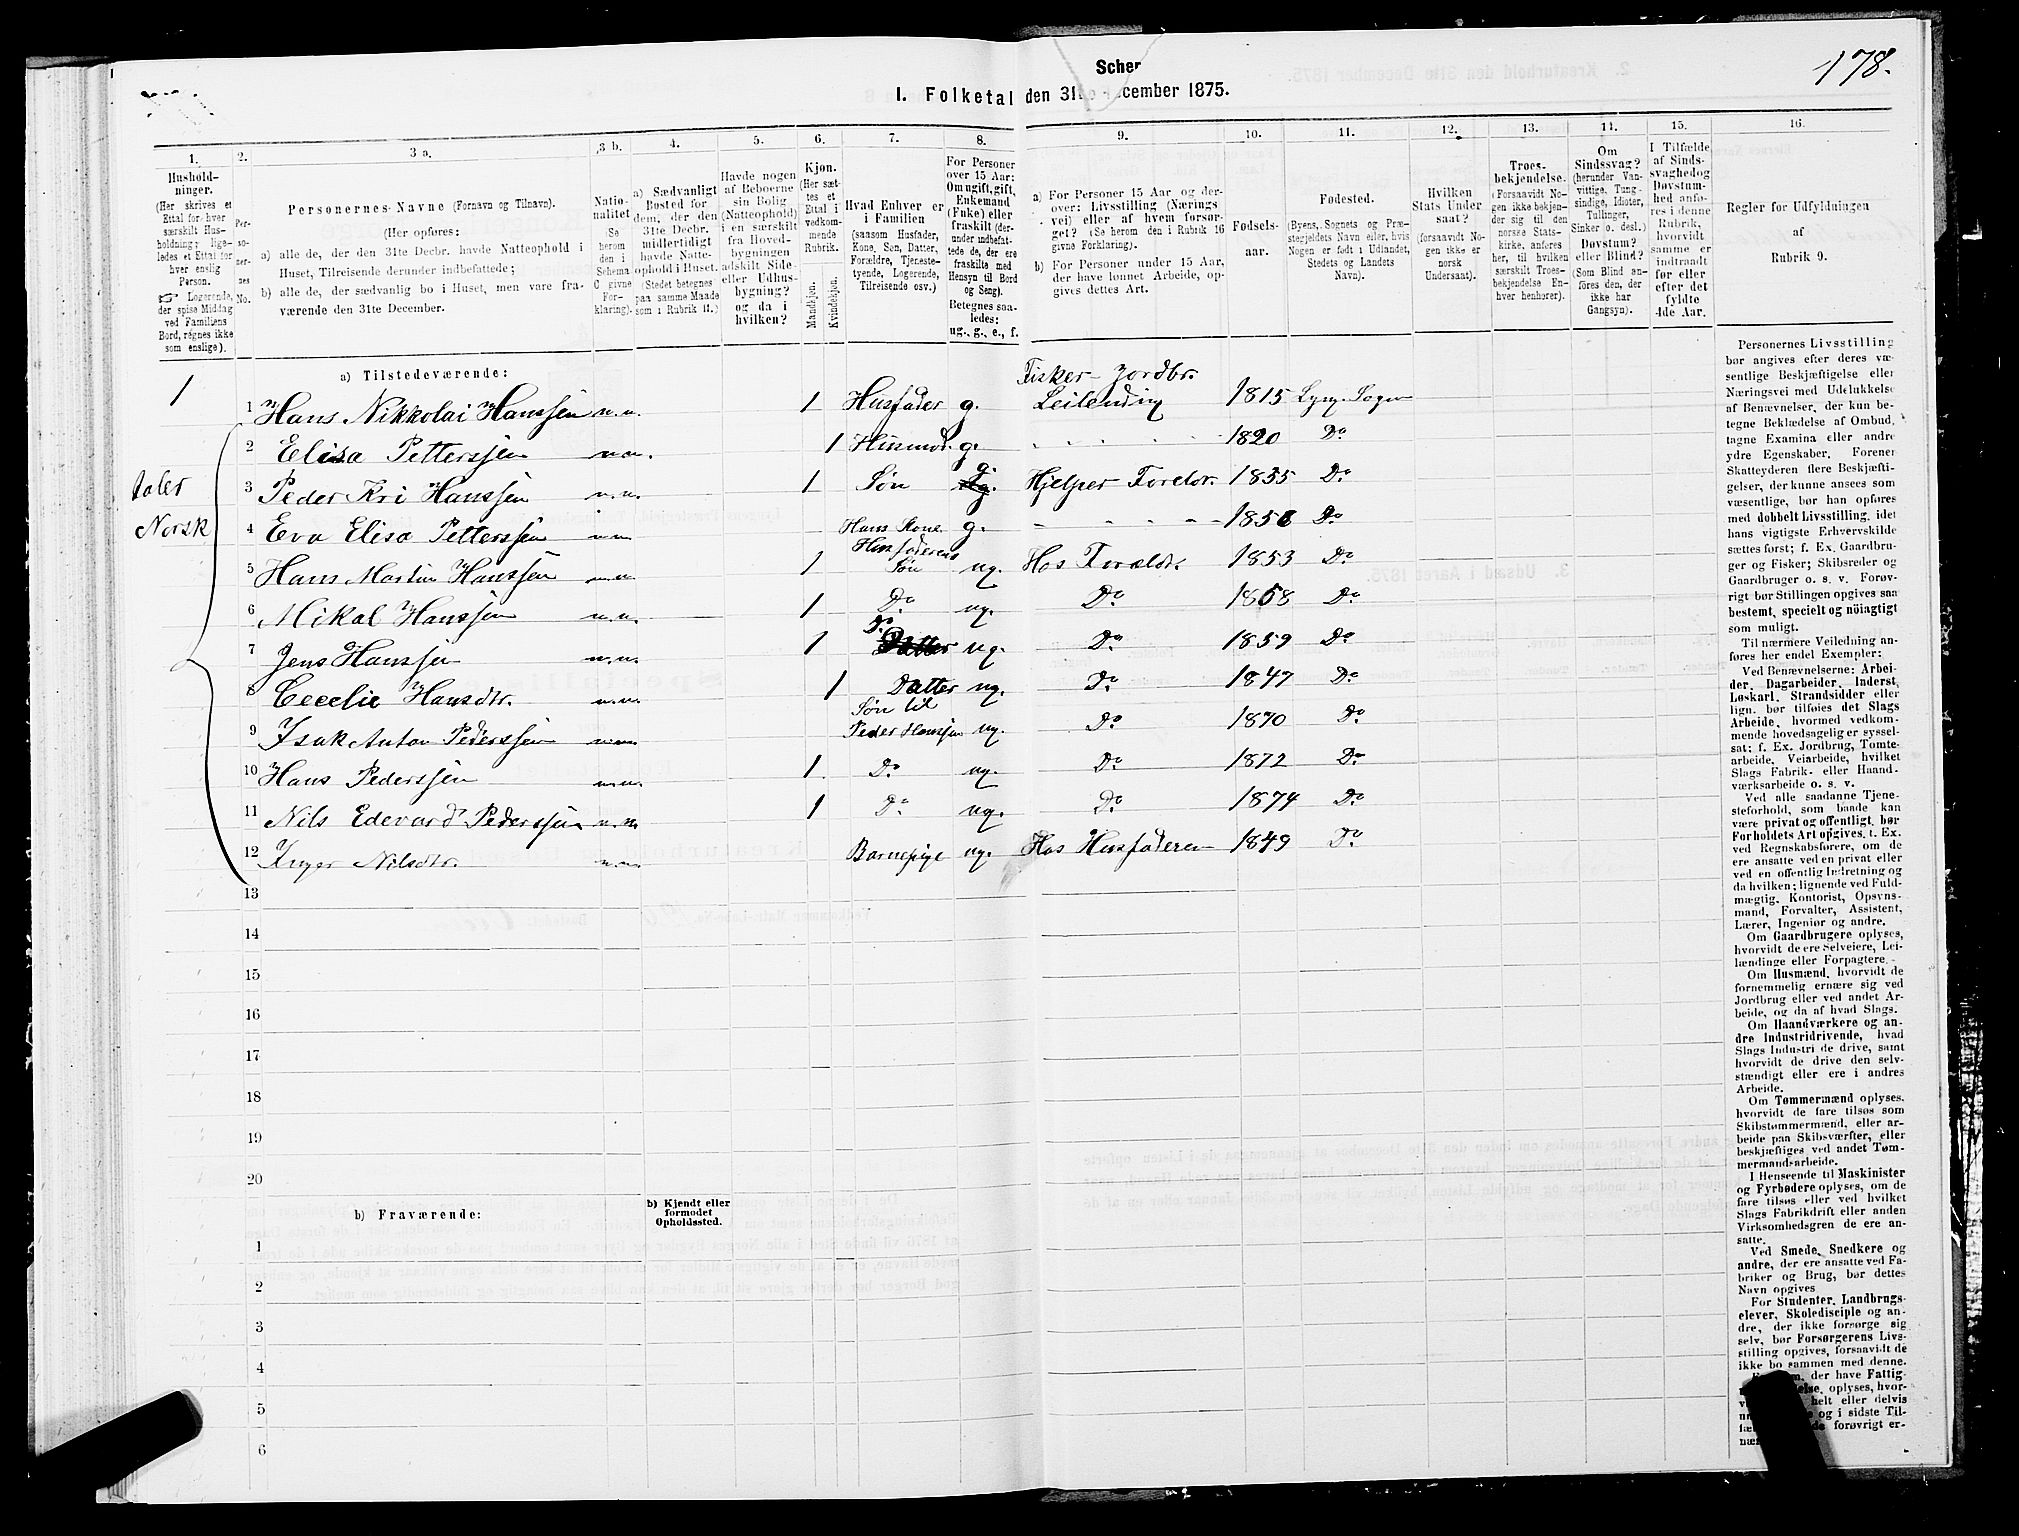 178.
Schem
I. Folketal den 31te December 1875.
1. 2. 3 a. 3 b. 4. 5. 6. 7. 8. 9. 10. 11. 12. 13. 14. 15. 16.
Husholdninger.
(Her skrives et
Ettal for hver
særskilt Husholdning;
ligeledes et Ettal for
hver enslig
Person.
☞ Logerende,
der spise Middag
ved Familiens
Bord, regnes ikke
som enslige).
Personernes No.
Personernes Navne (Fornavn og Tilnavn).
(Her opføres:
a) alle de, der den 31te Decbr. havde Natteophold i
Huset, Tilreisende derunder indbefattede;
b) alle de, der sædvanlig bo i Huset, men vare fraværende
den 31te December.
Nationalitet
(Se
herom
den i
Schema
C givne
Forklaring).
a) Sædvanligt
Bosted for
dem, der den
31te Decbr.
midlertidigt
havde Natteophold
i Huset.
(Stedet betegnes
paa samme Maade
som i Rubrik 11.)
Havde nogen
af Beboerne
sin Bolig
(Natteophold)
i en særskilt
fra Hovedbygningen
adskilt Side-
eller Udhusbygning?
og da i
hvilken?
Kjøn.
(Her sættes
et
Ettal i
vedkommende
Rubrik.
Mandkjøn.
Kvindekjøn.
Hvad Enhver er
i Familien
(saasom Husfader,
Kone, Søn, Datter,
Forældre, Tjenestetyende,
Logerende,
Tilreisende osv.)
For Personer
over 15 Aar:
Om ugift, gift,
Enkemand
(Enke) eller
fraskilt (derunder
indbefattede
de, der ere
fraskilte med
Hensyn til Bord
og Seng).
Betegnes saaledes:
ug., g., e., f.
a) For Personer 15 Aar og derover:
Livsstilling (Næringsvei)
eller af hvem forsørget?
(Se herom den i Rubrik 16
givne Forklaring).
b) For Personer under 15 Aar,
der have lønnet Arbeide, opgives
dettes Art.
Fødselsaar.
Fødested.
(Byens, Sognets og Præstegjeldets
Navn eller, hvis
Nogen er født i Udlandet,
Stedets og Landets
Navn).
Hvilken
Stats Undersaat?
(forsaavidt Nogen
ikke er
norsk
Undersaat).
Troesbekjendelse.
(Forsaavidt Nogen
ikke bekjender
sig til den
norske Statskirke,
anføres
her, til hvilken
særskilt Troesbekjendelse
Enhver
henhører).
Om
Sindssvag?
(herunder Vanvittige,
Tungsindige,
Idioter,
Tullinger,
Sinker o. desl.)
Døvstum?
eller Blind?
(Som Blind anføres
den, der
ikke har
Gangsyn).
I Tilfælde
af Sindssvaghed
og
Døvstumhed
anføres
i denne
Rubrik,
hvorvidt
samme er
indtraadt
før eller
efter det
fyldte
4de Aar.
Regler for Udfyldningen
af
Rubrik 9.
a) Tilstedeværende:
taler
Norsk
Fisker Jordbr.
1 1 Hans Nikkolai Hanssen n.n. 1 Husfader g. Leilending 1815 Lyng. Sogn
2 Elisa Petterssen n.n. 1 Husmod. g. 1820 Do
3 Peder Kri Hanssen n.n. 1 Søn g. Hjelper Foreldr. 1835 Do
4 Eva Elisa Petterssen n.n. Hans Kone g. 1851 Do
5 Hans Martin Hanssen n.n. 1 Husfaderens Søn ug. Hos Forældr. 1853 Do
6 Mikal Hanssen n.n. 1 Do ug. Do 1858 Do
7 Jens Hanssen n.n. 1 Do ug. Do 1859 Do
8 Cecelie Hansdtr. n.n. 1 Datter ug. Do 1847 Do
9 Isak Anton Pederssen n.n. Søn til Peder Hanssen ug. Do 1870 Do
10 Hans Pederssen n.n. 1 Do ug. Do 1872 Do
11 Nils Edevard Pederssen n.n. 1 Do ug. Do 1874 Do
12 Inger Nilsdtr. n.n. Barnepige ug. Hos Husfaderen 1849 Do
13
14
15
16
17
18
19
20
b) Fraværende:
b) Kjendt eller
formodet
Opholdssted.
1
2
3
4
5
6
Personernes Livsstilling
bør angives efter deres væsentlige
Beskjæftigelse eller
Næringsvei med Udelukkelse
af Benævnelser, der kun betegne
Beklædelse af Ombud,
tagne Examina eller andre
ydre Egenskaber. Forener
Skatteyderen flere Beskjæftigelser,
der kunne ansees som
væsentlige, bør han opføres
med dobbelt Livsstilling, idet
hans vigtigste Erhvervskilde
sættes først; f. Ex. Gaardbruger
og Fisker; Skibsreder og
Gaardbruger o. s. v. Forøvrigt
bør Stillingen opgives saa
bestemt, specielt og nöiagtigt
som muligt.
Til nærmere Veiledning anføres
her endel Exempler:
Ved Benævnelserne: Arbeider,
Dagarbeider, Inderst,
Løskarl, Strandsidder eller
lign. bør tilføies det Slags
Arbeide, hvormed vedkommende
hovedsagelig er sysselsat;
f. Ex. Jordbrug, Tomtearbeide,
Veiarbeide, hvilket
Slags Fabrik- eller Haandværksarbeide
o. s. v.
Ved alle saadanne Tjenesteforhold,
som baade kan
være privat og offentligt, bør
Forholdets Art opgives, t. Ex.
ved Regnskabsførere, om de
ere ansatte ved en privat eller
ved en offentlig Indretning og
da hvilken; lignende ved Fuldmægtig,
Kontorist, Opsynsmand,
Forvalter, Assistent,
Lærer, Ingeniør og andre.
Om Gaardbrugere oplyses,
hvorvidt de ere Selveiere, Leilændinge
eller Forpagtere.
Om Husmænd, hvorvidt de
fornemmelig ernære sig ved
Jordbrug eller ved andet Arbeide,
og da af hvad Slags.
Om Haandværkere og andre
Industridrivende, hvad
Slags Industri de drive, samt
hvorvidt de drive den selvstændigt
eller ere i andres
Arbeide.
Om Tømmermænd oplyses,
hvorvidt de fare tilsøs som
Skibstømmermænd, eller arbeide
paa Skibsværfter, eller
beskjæftiges ved andet Tømmermandsarbeide.
I Henseende til Maskinister
og Fyrbødere oplyses, om de
fare tilsøs eller ved hvilket
Slags Fabrikdrift eller anden
Virksomhedsgren de ere ansatte.
Ved Smede, Snedkere og
andre, der ere ansatte ved Fabriker
og Brug, bør dettes
Navn opgives
For Studenter, Landbrugselever,
Skoledisciple og andre,
der ikke forsørge sig
selv, bør Forsørgerens Livsstilling
opgives, forsaavidt de
ikke bo sammen med denne.
der have Fattig
oplyses, hvor
helt eller delvis
og i sidste Til
forøvrigt er